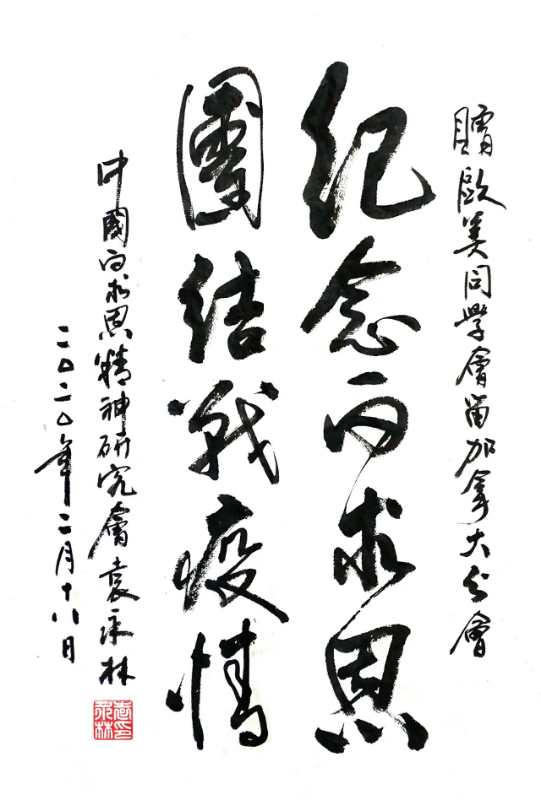 贈歐美同學會留加拿大分會
紀念白求恩
團結戰疫情
中國白求恩精神研究會袁永林
二〇二〇年二月十八日
袁永林印